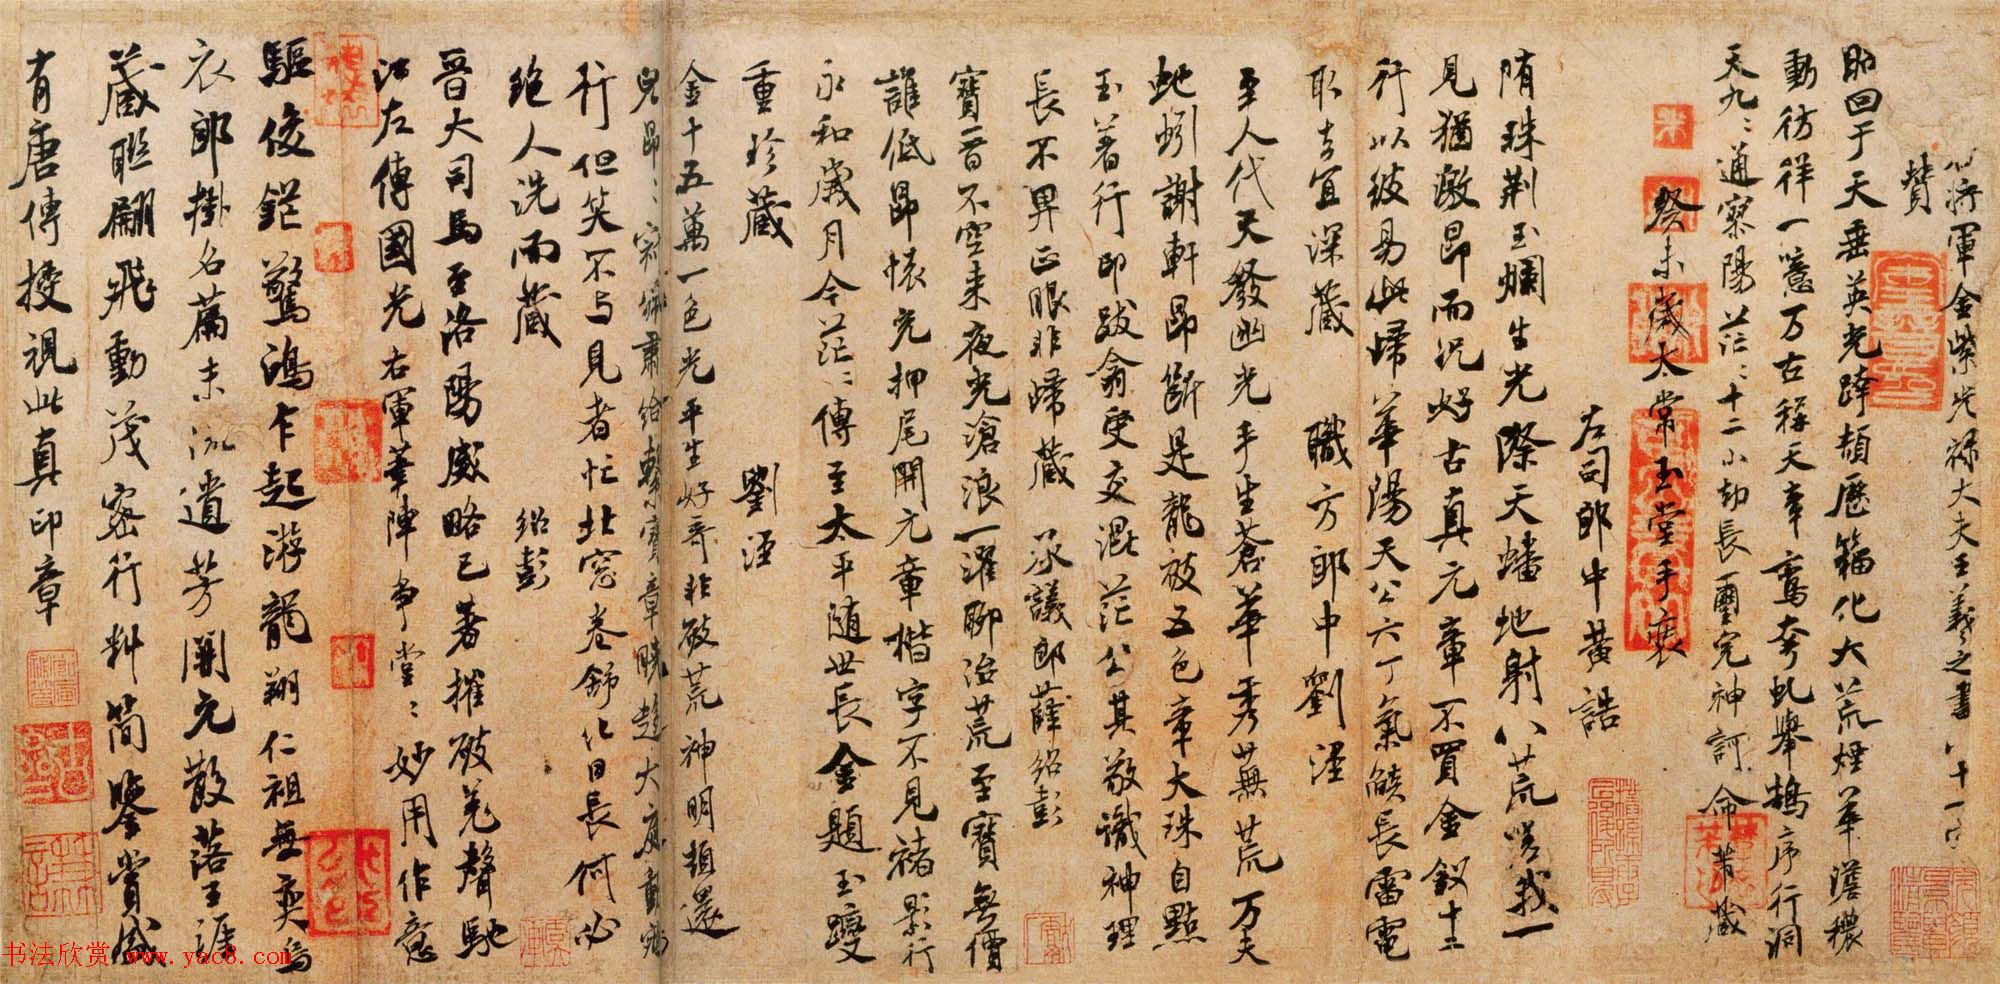 右將軍金紫光祿大夫王羲之書
贊
昭回于天垂英光跨頡歷籀化大荒煙華澹穠
動彷徉一噫萬古稱天章鸞夸虬舉鵠序行洞
天九〻通寥陽茫〻十二小劫長璽完神訶命芾藏
癸未歲太常玉堂手裝
左司郎中黃誥
隋珠荆玉爛生光際天蟠地射八荒嗟我一
見猶激昂而況好古真元章不買金釵十二
行以彼易此歸華陽天公六丁氣燄長雷電
取去宜深藏　職方郎中劉涇
至人代天發幽光手生蒼華秀蕪荒万夫
虵蚓謝軒昂斷是龍祓五色章大珠自點
玉著行印跋翁受交混茫公其敬識神理
長不畀正眼非歸藏　承議郎薛紹彭
寶晉不空來夜光滄浪一濯聊治荒至寶無價
誰低昂懷充押尾開元章楷字不見褚影行
永和歲月今茫〻傳至太平隨世長金題玉躞
重珍藏
劉涇
金十五萬一色光平生好奇非破荒神明頓還
行但笑不與見者忙北窓卷舒化日長何必
絶人洗而藏
紹彭
晉大司馬至洛陽威略已著摧破羌聲馳
江左傳國光右軍華陣爭堂〻妙用作意
驅俊鋩驚鴻乍起游龍翔仁祖無奕爲
衣郎掛名篇末流遺芳開元散落王涯
藏聯翩飛動茂密行料簡鑒賞咸
有唐傳授視此真印章
书法欣赏 www.yac8.com